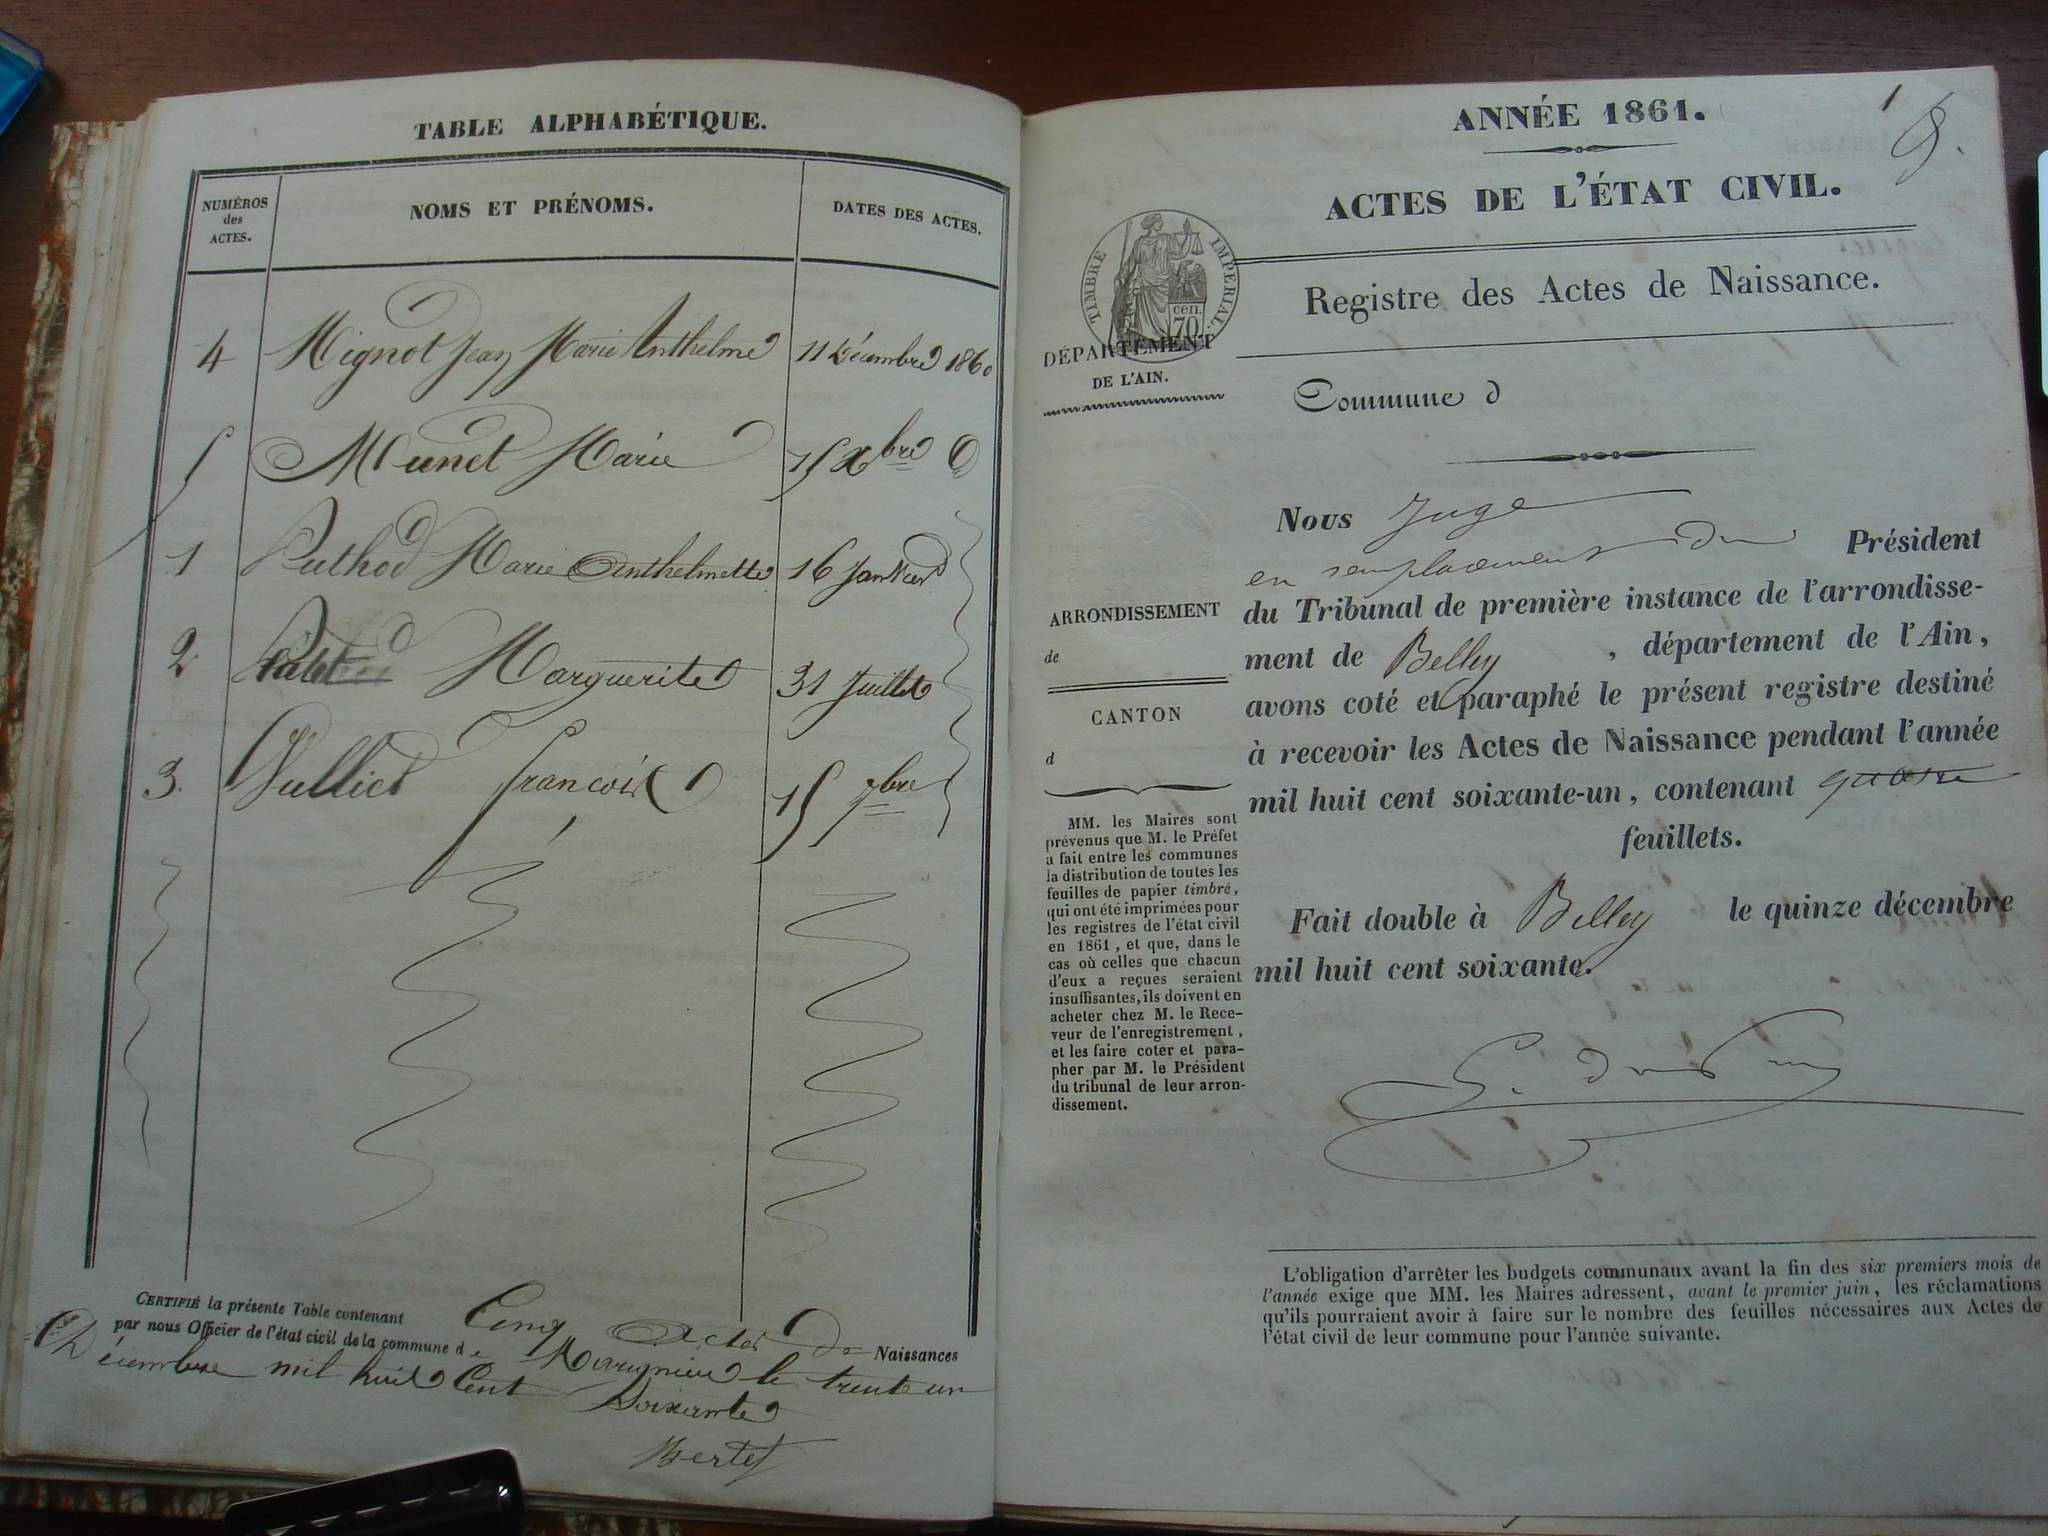 TABLE ALPHABÉTIQUE.
NUMÉROS des ACTES. NOMS ET PRÉNOMS. DATES DES ACTES.
4 Mignot Jean Marie Anthelme 11 Décembre 1860
5 Meunet Marie 15 Xbre
1 Puthod Marie Anthelmette 16 Janvier
2 Marguerite 31 Juillet
3. Vulliet François 15 7bre
CERTIFIÉ la présente Table contenant Cinq Actes de Naissances
par nous Officier de l'état cicil de la commune de Marignieu le trente un
Décembre mil huit Cent Soixante
Bertet
1
ANNÉE 1861.
ACTES DE L'ÉTAT CIVIL.
TIMBRE IMPÉRIAL.
cen.
70
Registre des Actes de Naissance.
DÉPARTEMENT
DE L'AIN.
Commune d
ARRONDISSEMENT
de
CANTON
d
MM. les Maires sont
prévenus que M. le Préfet
a fait entre les communes
la distribution de toutes les
feuilles de papier timbré,
qui ont été imprimées pour
les registres de l'état civil
en 1861, et que, dans le
cas où celles que chacun
d'eux a reçues seraient
insuffisantes, ils doivent en
acheter chez M. le Rece-
veur de l'enregistrement,
et les faire coter et para-
pher par M. le Président
du tribunal de leur arron-
dissement.
Nous Juge
en remplacement du Président
du Tribunal de première instance de l'arrondisse-
ment de Belley , département de l'Ain,
avons coté et paraphé le présent registre destiné
à recevoir les Actes de Naissance pendant l'année
mil huit cent soixante-un, contenant quatre
feuillets.
Fait double à Belley le quinze décembre
mil huit cent soixante.
L'obligation d'arrêter les budgets communaux avant la fin des six premiers mois de
l'année exige que MM. les Maires adressent, avant le premier juin, les réclamations
qu'ils pourraient avoir à faire sur le nombre des feuilles nécessaires aux Actes de
l'état civil de leur commune pour l'année suivante.